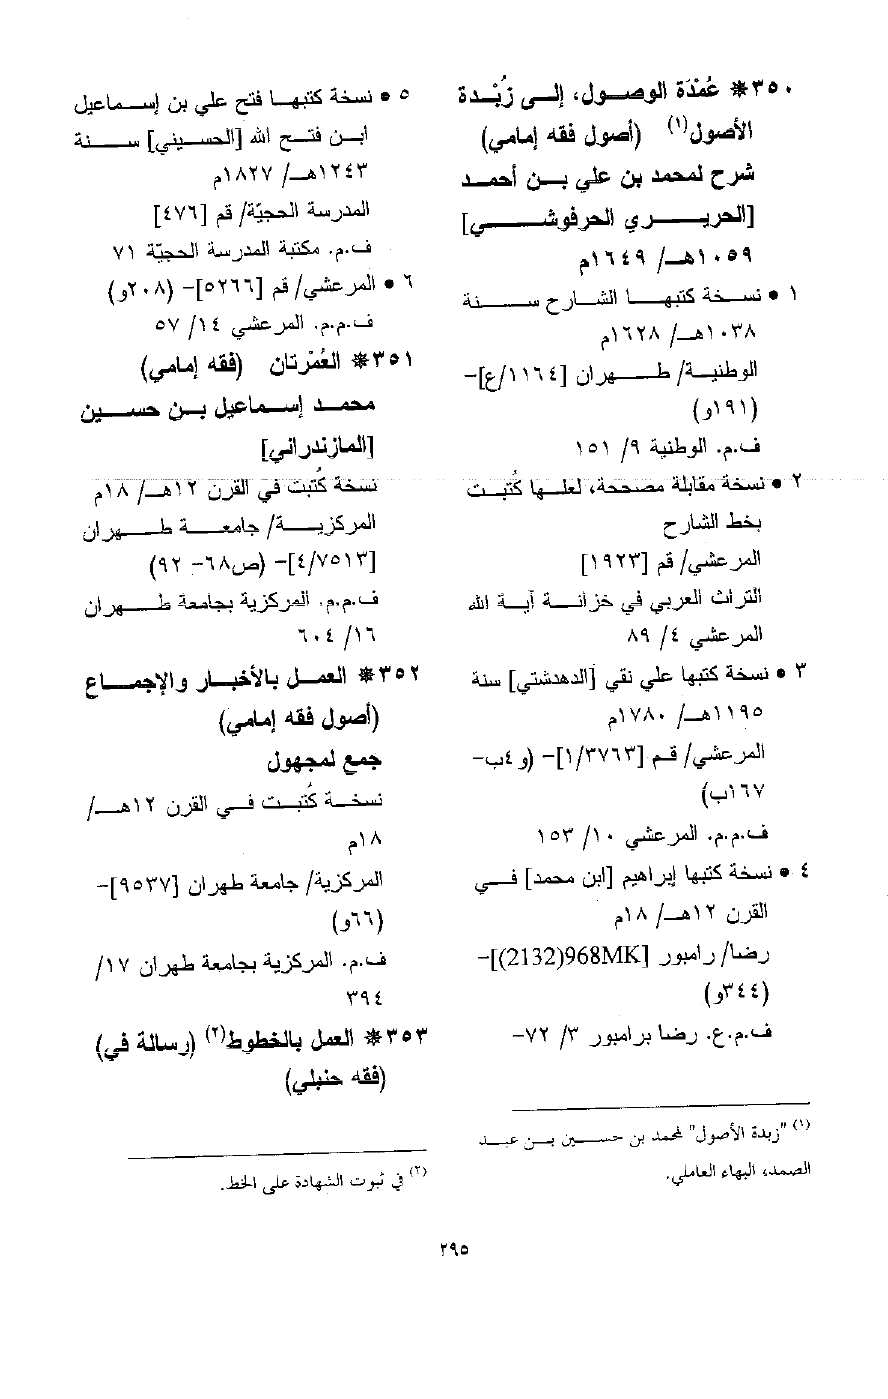 ٣٥٠ * عُمْدَة الوصول، إلى زُبْدة
الأصول(١) (أصول فقه إمامي)
شرح لمحمد بن علي بن أحمد
[الحريري الحرفوشي]
١٠٥٩هـ/ ١٦٤٩م
١ • نسخة كتبها الشارح سنة
١٠٣٨هـ/ ١٦٢٨م
الوطنية/ طهران [١١٦٤/ع]-
(١٩١و)
ف.م. الوطنية ٩/ ١٥١
٢ • نسخة مقابلة مصححة، لعلها كُتبت
بخط الشارح
المرعشي/ قم [١٩٢٣]
التراث العربي في خزانة آية الله
المرعشي ٤/ ٨٩
٣ • نسخة كتبها علي نقي [الدهدشتي] سنة
١١٩٥هـ/ ١٧٨٠م
المرعشي/ قم [١/٣٧٦٣]- (و٤ب-
١٦٧ب)
ف.م.م. المرعشي ١٠/ ١٥٣
٤ • نسخة كتبها إبراهيم [ابن محمد] في
القرن ١٢هـ/ ١٨م
رضا/ رامبور [968MK(2132)]-
(٣٤٤و)
ف.م.ع. رضا برامبور ٣/ ٧٢-
(١) "زبدة الأصول" لمحمد بن حسين بن عبد
الصمد، البهاء العاملي.
٥ • نسخة كتبها فتح علي بن إسماعيل
ابن فتح الله [الحسيني] سنة
١٢٤٣هـ/ ١٨٢٧م
المدرسة الحجيّة/ قم [٤٧٦]
ف.م. مكتبة المدرسة الحجيّة ٧١
٦ • المرعشي/ قم [٥٢٦٦]- (٢٠٨و)
ف.م.م. المرعشي ١٤/ ٥٧
٣٥١ * العُمْرتان (فقه إمامي)
محمد إسماعيل بن حسين
[المازندراني]
نسخة كُتبت في القرن ١٢هـ/ ١٨م
المركزية/ جامعة طهران
[٤/٧٥١٣]- (ص٦٨- ٩٢)
ف.م.م. المركزية بجامعة طهران
١٦/ ٦٠٤
٣٥٢ * العمل بالأخبار والإجماع
(أصول فقه إمامي)
جمع لمجهول
نسخة كُتبت في القرن ١٢هـ/
١٨م
المركزية/ جامعة طهران [٩٥٣٧]-
(٦٦و)
ف.م. المركزية بجامعة طهران ١٧/
٣٩٤
٣٥٣ * العمل بالخطوط(٢) (رسالة في)
(فقه حنبلي)
(٢) في ثبوت الشهادة على الخط.
٢٩٥